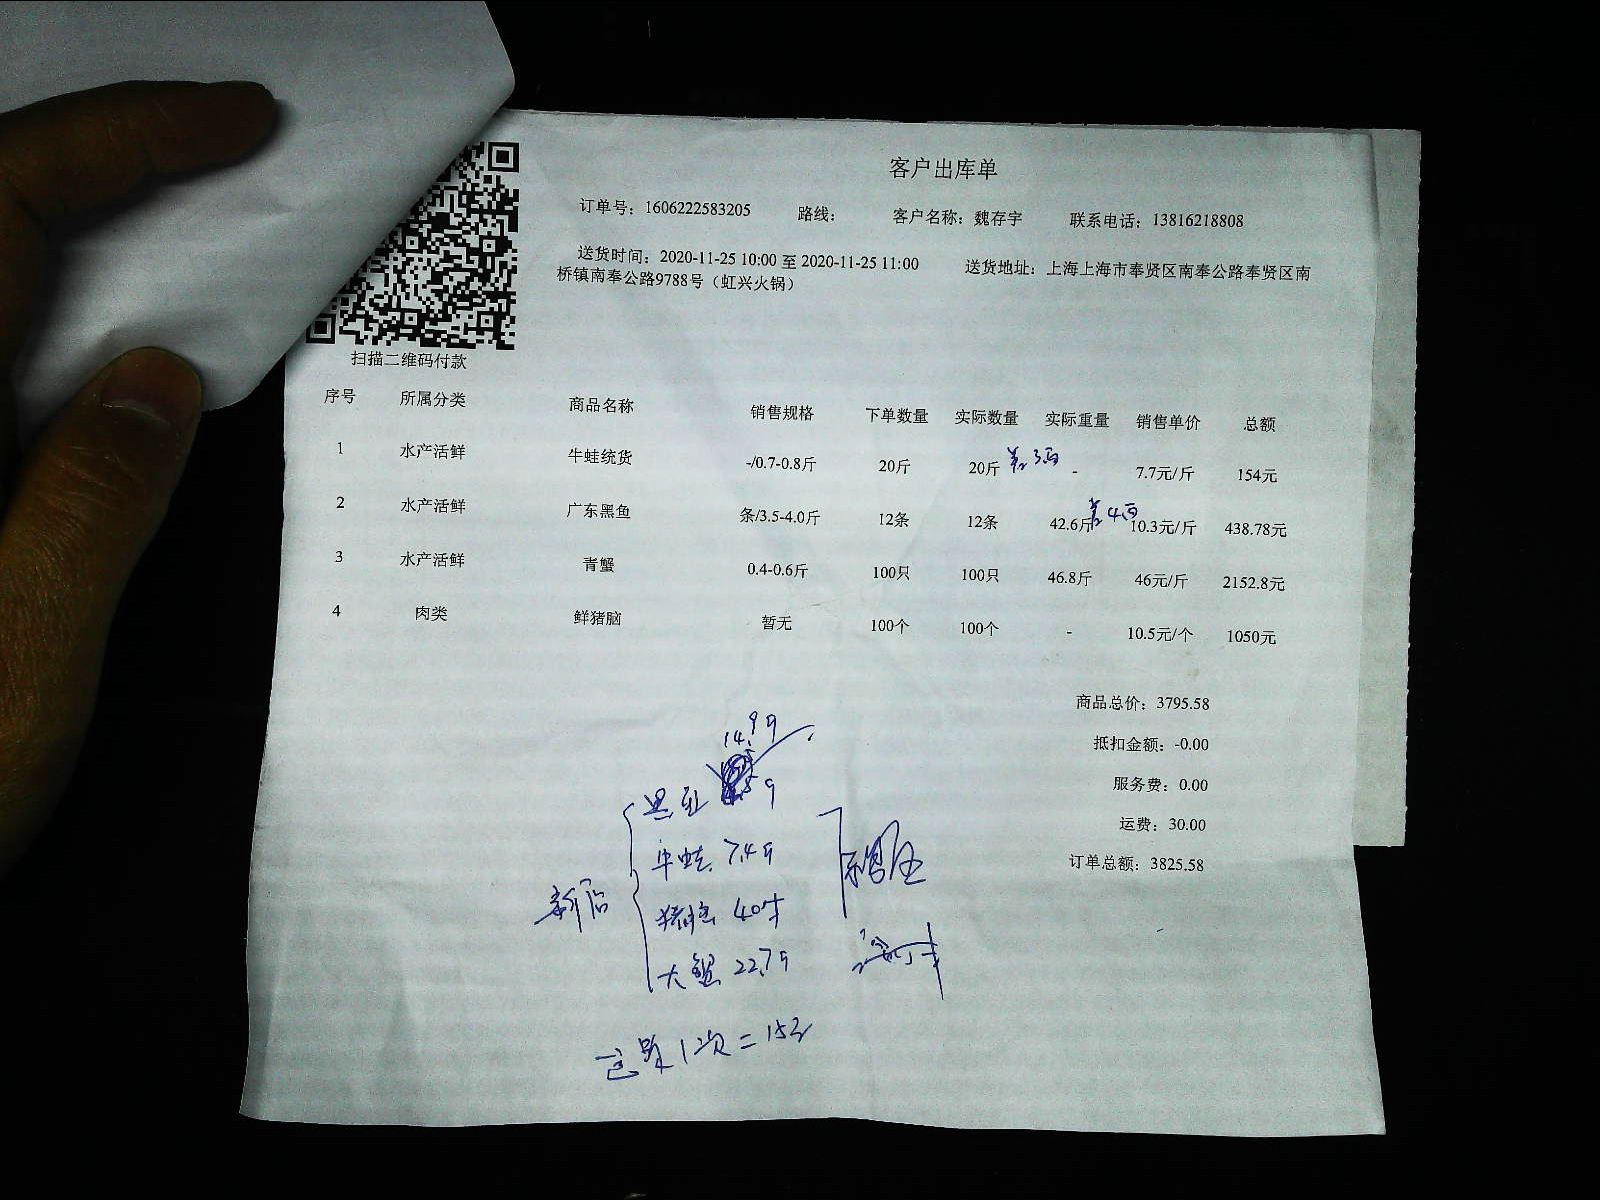 客户出库单
订单号：1606222583205 路线： 客户名称：魏存宇 联系电话：13816218808
送货时间：2020-11-25 10:00 至 2020-11-25 11:00 送货地址：上海上海市奉贤区南奉公路奉贤区南
桥镇南奉公路9788号（虹兴火锅）
扫描二维码付款
序号 所属分类 商品名称 销售规格 下单数量 实际数量 实际重量 销售单价 总额
1 水产活鲜 牛蛙统货 -/0.7-0.8斤 20斤 20斤 差3两 - 7.7元/斤 154元
2 水产活鲜 广东黑鱼 条/3.5-4.0斤 12条 12条 42.6斤 差4两 10.3元/斤 438.78元
3 水产活鲜 青蟹 0.4-0.6斤 100只 100只 46.8斤 46元/斤 2152.8元
4 肉类 鲜猪脑 暂无 100个 100个 - 10.5元/个 1050元
商品总价：3795.58
抵扣金额：-0.00
服务费：0.00
运费：30.00
订单总额：3825.58
14.9斤
黑鱼
牛蛙 7.4斤
新店
猪脑 40个
大蟹 22.7斤
1次=15元